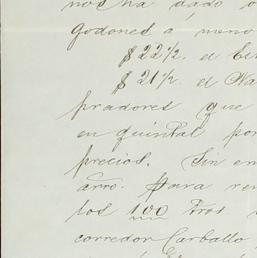 nos ha dado o
godones á meno
$22½. el
$21½ el Na
pradores que
en quintal por
precios. Sin em
arre. Para rem
los 100 Bros
corredor Carballo